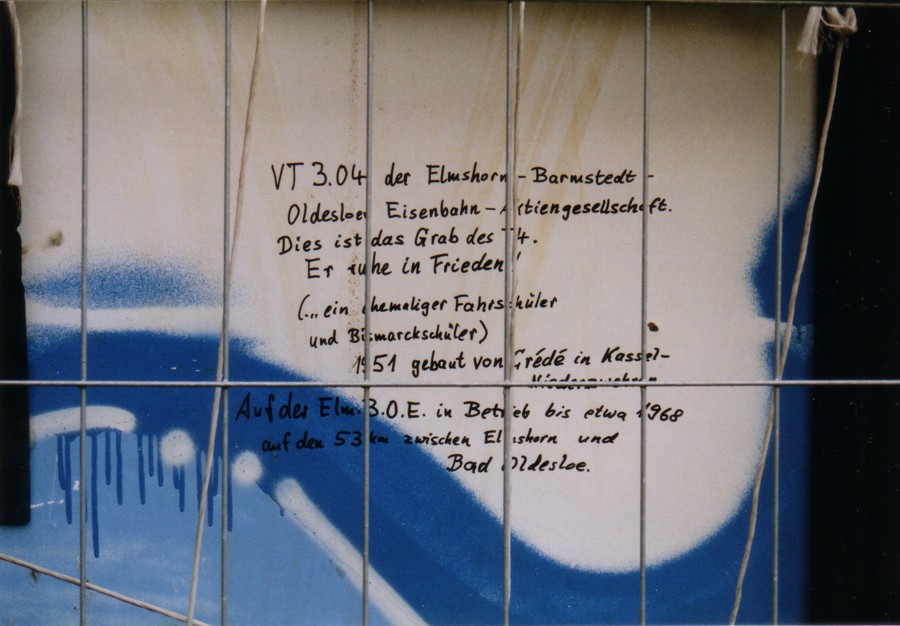 VT 3.04 der Elmshorn-Barmstedt-
Oldesloer Eisenbahn-Aktiengesellschaft.
Dies ist das Grab des T4.
Er ruhe in Frieden!
(...ein ehemaliger Fahrschüler
und Bismarckschüler)
1951 gebaut von Crédé in Kassel-
Niederzwehren
Auf der Elm.B.O.E. in Betrieb bis etwa 1968
auf den 53 km zwischen Elmshorn und
Bad Oldesloe.